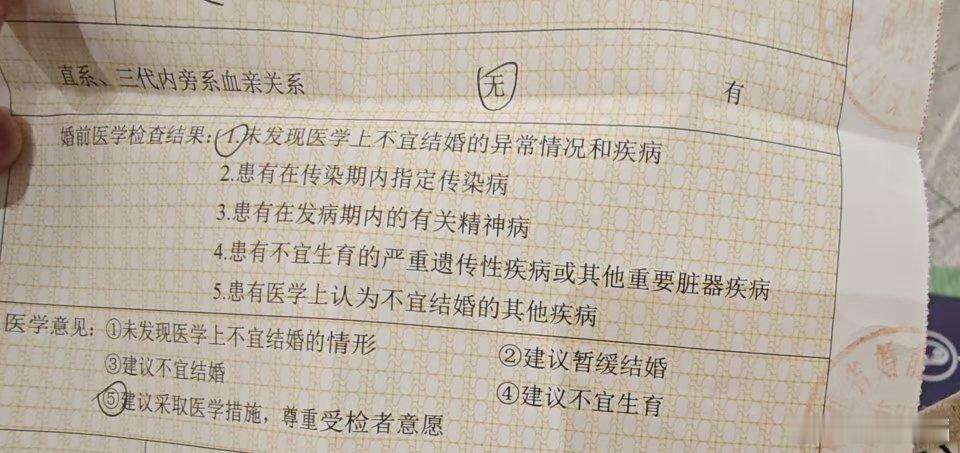 直系、三代内旁系血亲关系 无 有
婚前医学检查结果：1.未发现医学上不宜结婚的异常情况和疾病
2.患有在传染期内指定传染病
3.患有在发病期内的有关精神病
4.患有不宜生育的严重遗传性疾病或其他重要脏器疾病
5.患有医学上认为不宜结婚的其他疾病
医学意见：①未发现医学上不宜结婚的情形 ②建议暂缓结婚
③建议不宜结婚 ④建议不宜生育
⑤建议采取医学措施，尊重受检者意愿